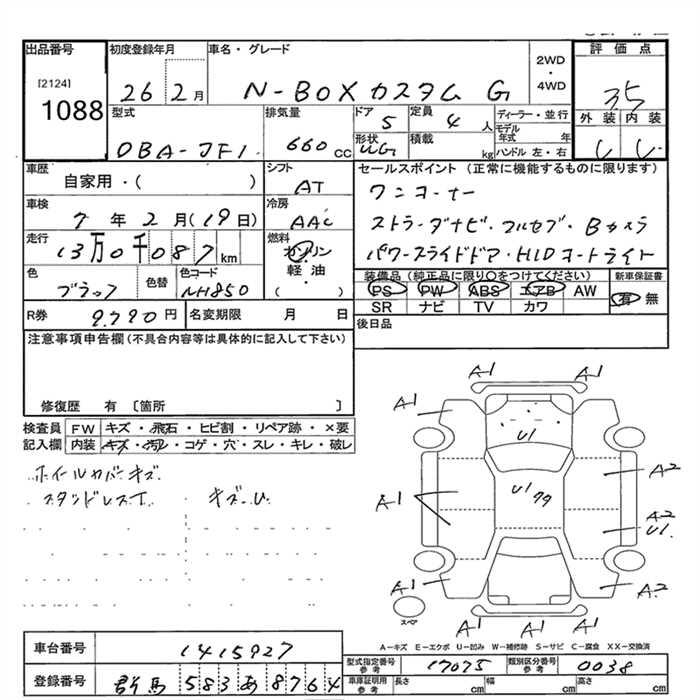 出品番号 初度登録年月 車名・グレード 評価点
[2124]
1088
26 2月 N-BOXカスタム G 2WD・4WD 35
型式 排気量 ドア 定員 ディーラー・並行 外装 内装
DBA-JF1 660cc 5 4人 モデル年式 年
形状 積載 kg ハンドル 左・右
車歴 シフト セールスポイント (正常に機能するものに限ります)
自家用・( ) AT ワンオーナー
車検 冷房
7年2月(19日) AAC ストラーダナビ・フルセグ・Bカメラ
走行 燃料
13万0千087km ガソリン パワースライドドア・HIDヘッドライト
軽油・
( )
色 色替 色コード 装備品 (純正品に限り○をつけてください) 新車保証書
ブラック NH850 PS PW ABS エアB AW 有 無
SR ナビ TV カワ
R券 9.790円 名変期限 月 日 後日品
注意事項申告欄(不具合内容等は具体的に記入して下さい)
修復歴 有〔箇所 〕
検査員 FW キズ・飛石・ヒビ割・リペア跡・×要
記入欄 内装 キズ・汚れ・コゲ・穴・スレ・キレ・破レ
ホイールカバーキズ
キズ・U
A-1 A-1
A-1
U1
A-2
A-1 U1
A-2
U1
A-1 A-2
A-1 A-1
スペア
A-キズ E-エクボ U-凹み W-補修跡 S-サビ C-腐食 XX-交換済
車台番号 1415927
型式指定番号 参考 17075 類別区分番号 参考 0038
登録番号 群馬 583 あ 8764
車庫証明用 参考 長さ cm 幅 cm 高さ cm